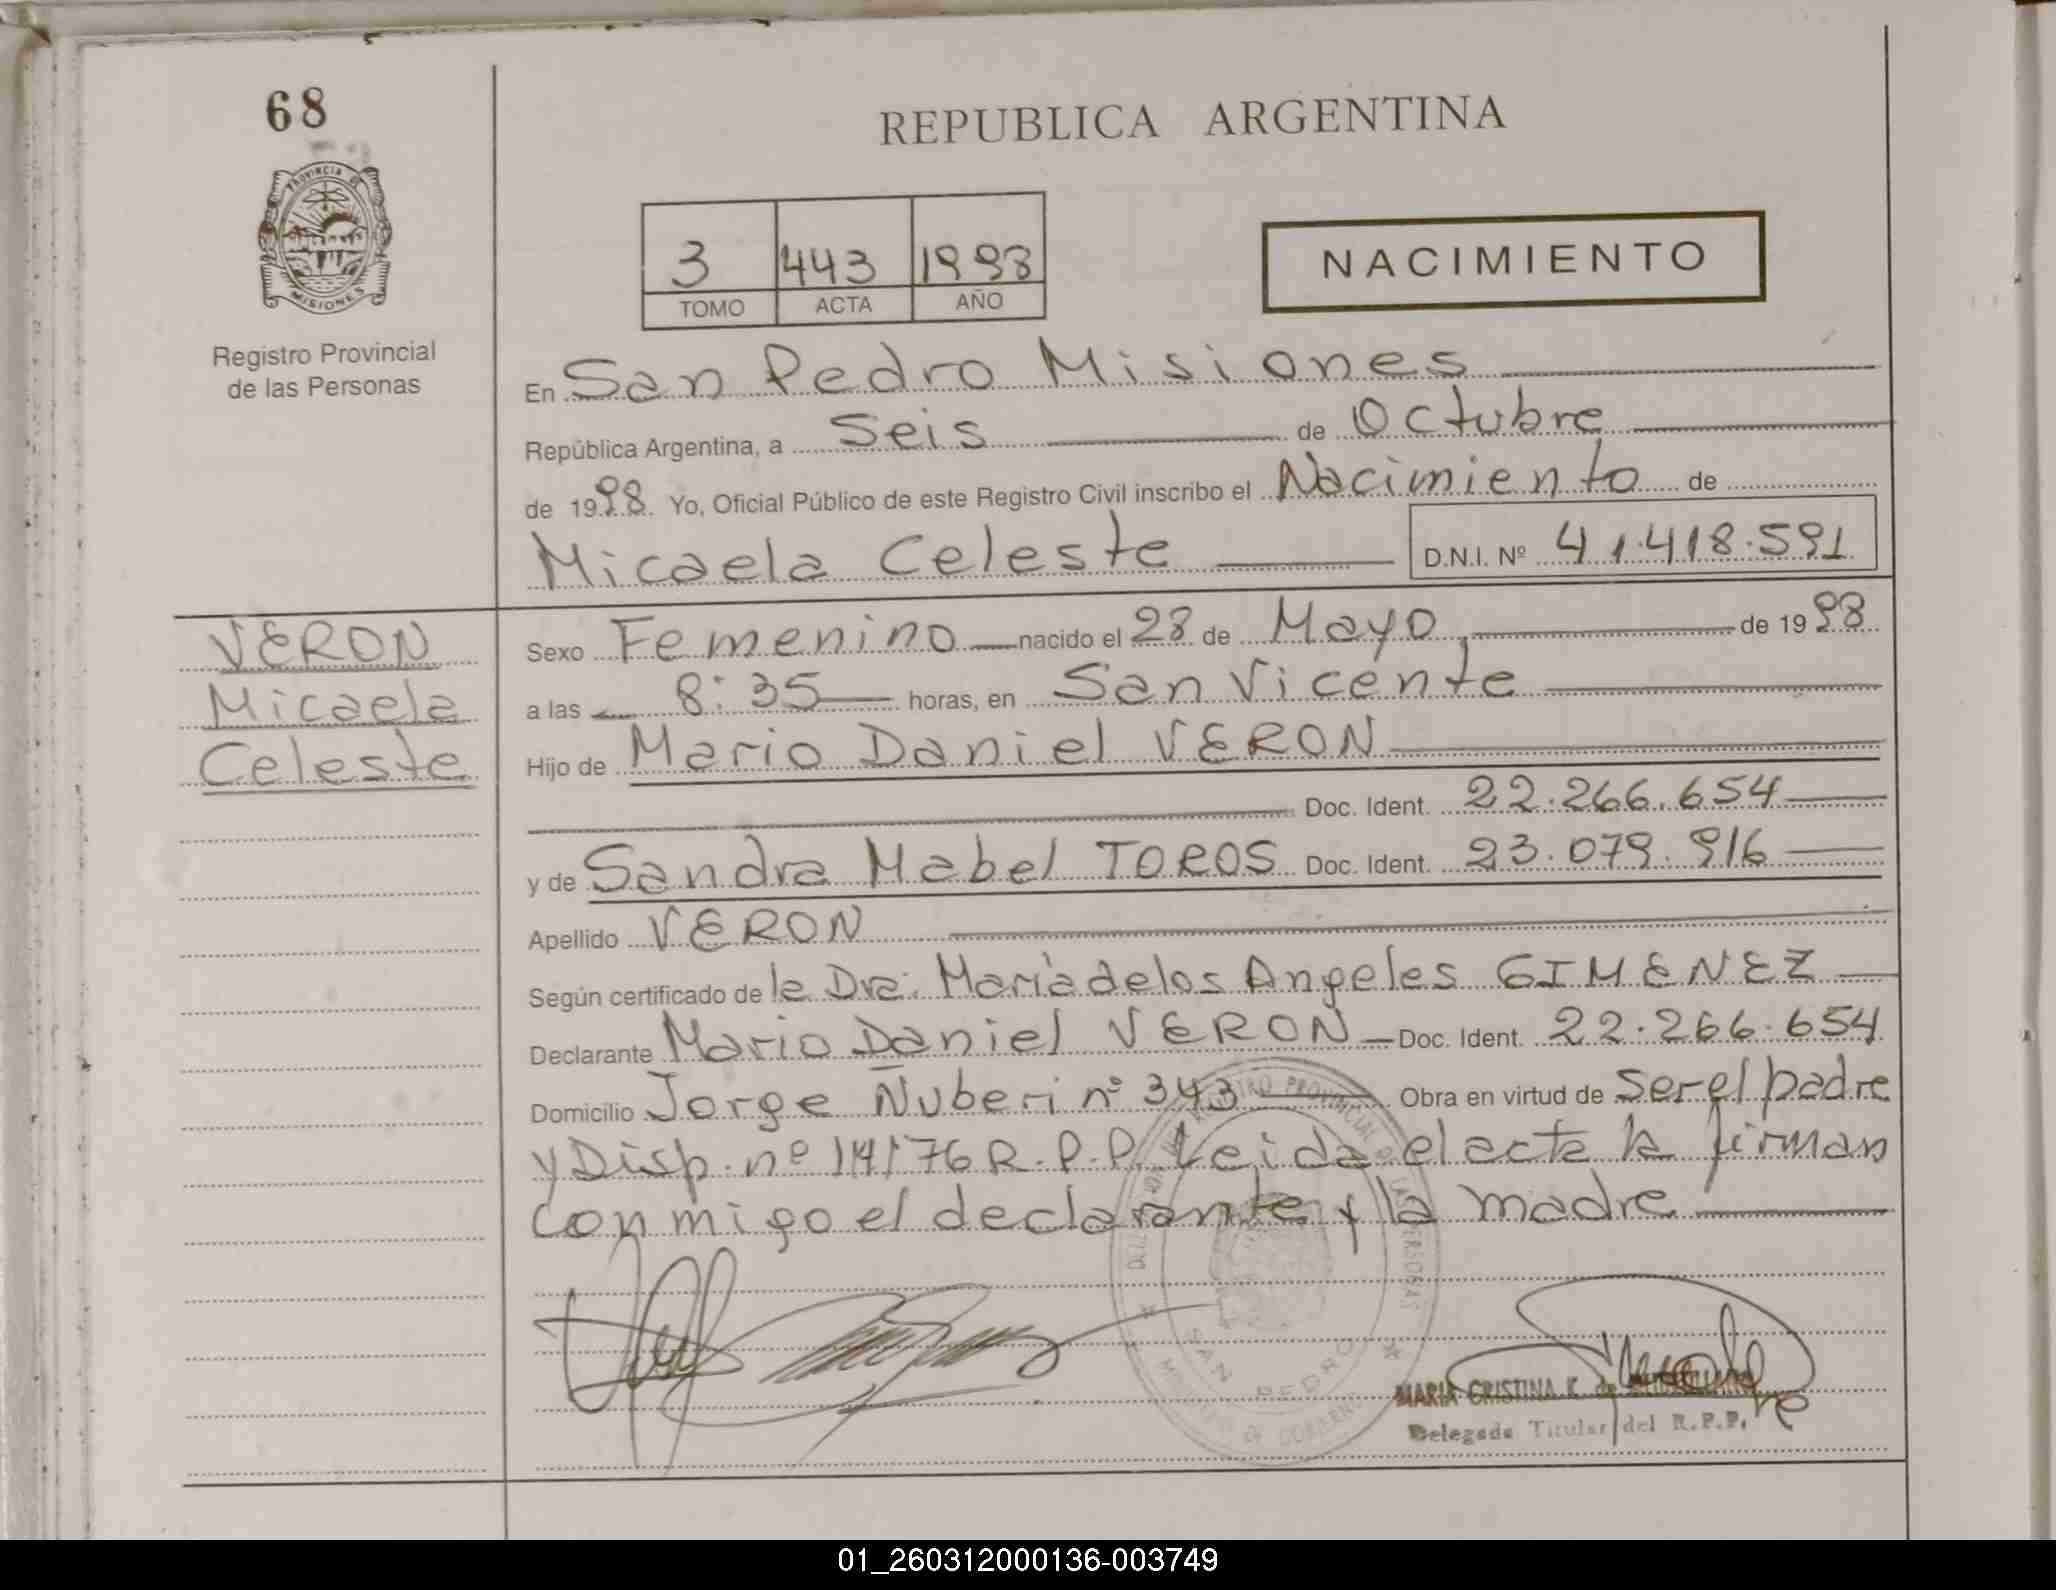 68
REPUBLICA ARGENTINA
PROVINCIA DE
MISIONES
Registro Provincial
de las Personas
3 443 1998
TOMO ACTA AÑO
NACIMIENTO
En San Pedro Misiones
República Argentina, a Seis de Octubre
de 1998. Yo, Oficial Público de este Registro Civil inscribo el Nacimiento de
Micaela Celeste D.N.I. Nº 41.418.591
VERON
Micaela
Celeste
Sexo Femenino nacido el 28 de Mayo de 1998
a las 8:35 horas, en San Vicente
Hijo de Mario Daniel VERON
Doc. Ident. 22.266.654
y de Sandra Mabel TOROS Doc. Ident. 23.079.916
Apellido VERON
Según certificado de la Dra: María de los Angeles GIMENEZ
Declarante Mario Daniel VERON Doc. Ident. 22.266.654
Domicilio Jorge Ñuberi nº 343 Obra en virtud de ser el padre
y Disp. nº 14/76 R.P.P. Leida el acta la firman
conmigo el declarante y la madre
REGISTRO PROVINCIAL DE LAS PERSONAS
SAN PEDRO
MARIA CRISTINA K. de
Delegada Titular del R.P.P.
01_260312000136-003749